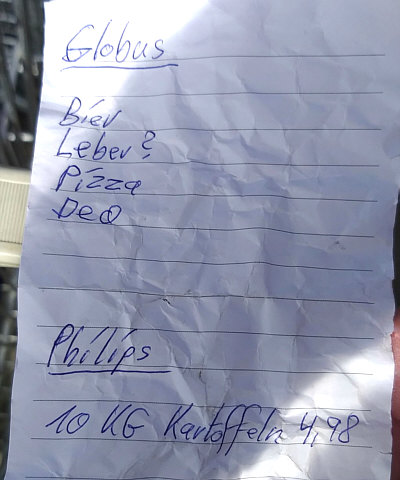 Globus
Bier
Leber?
Pizza
Deo
Philips
10 KG Kartoffeln 4,98